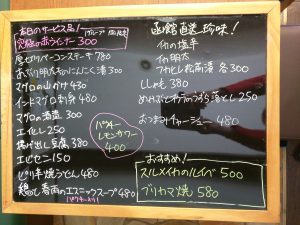 本日のサービス品！
究極のポテトウィンナー 300
厚切りベーコンステーキ 780
あぶり明太子のにんにく漬 300
マグロの山かけ 430
インドマグロ刺身 480
マグロの酒盗 300
エイヒレ 250
揚げ出し豆腐 380
エビセン 150
ピリ辛焼うどん 480
鶏と春雨のエスニックスープ 480
(パクチー入り)
パクチー
レモンサワー
400
函館直送 珍味！
イカの塩辛
イカ明太
つぶとし松前漬 各300
ししゃも 380
うずら落とし 250
おつまみチャーシュー 480
おすすめ！
スルメイカのルイベ 500
ブリカマ焼 580